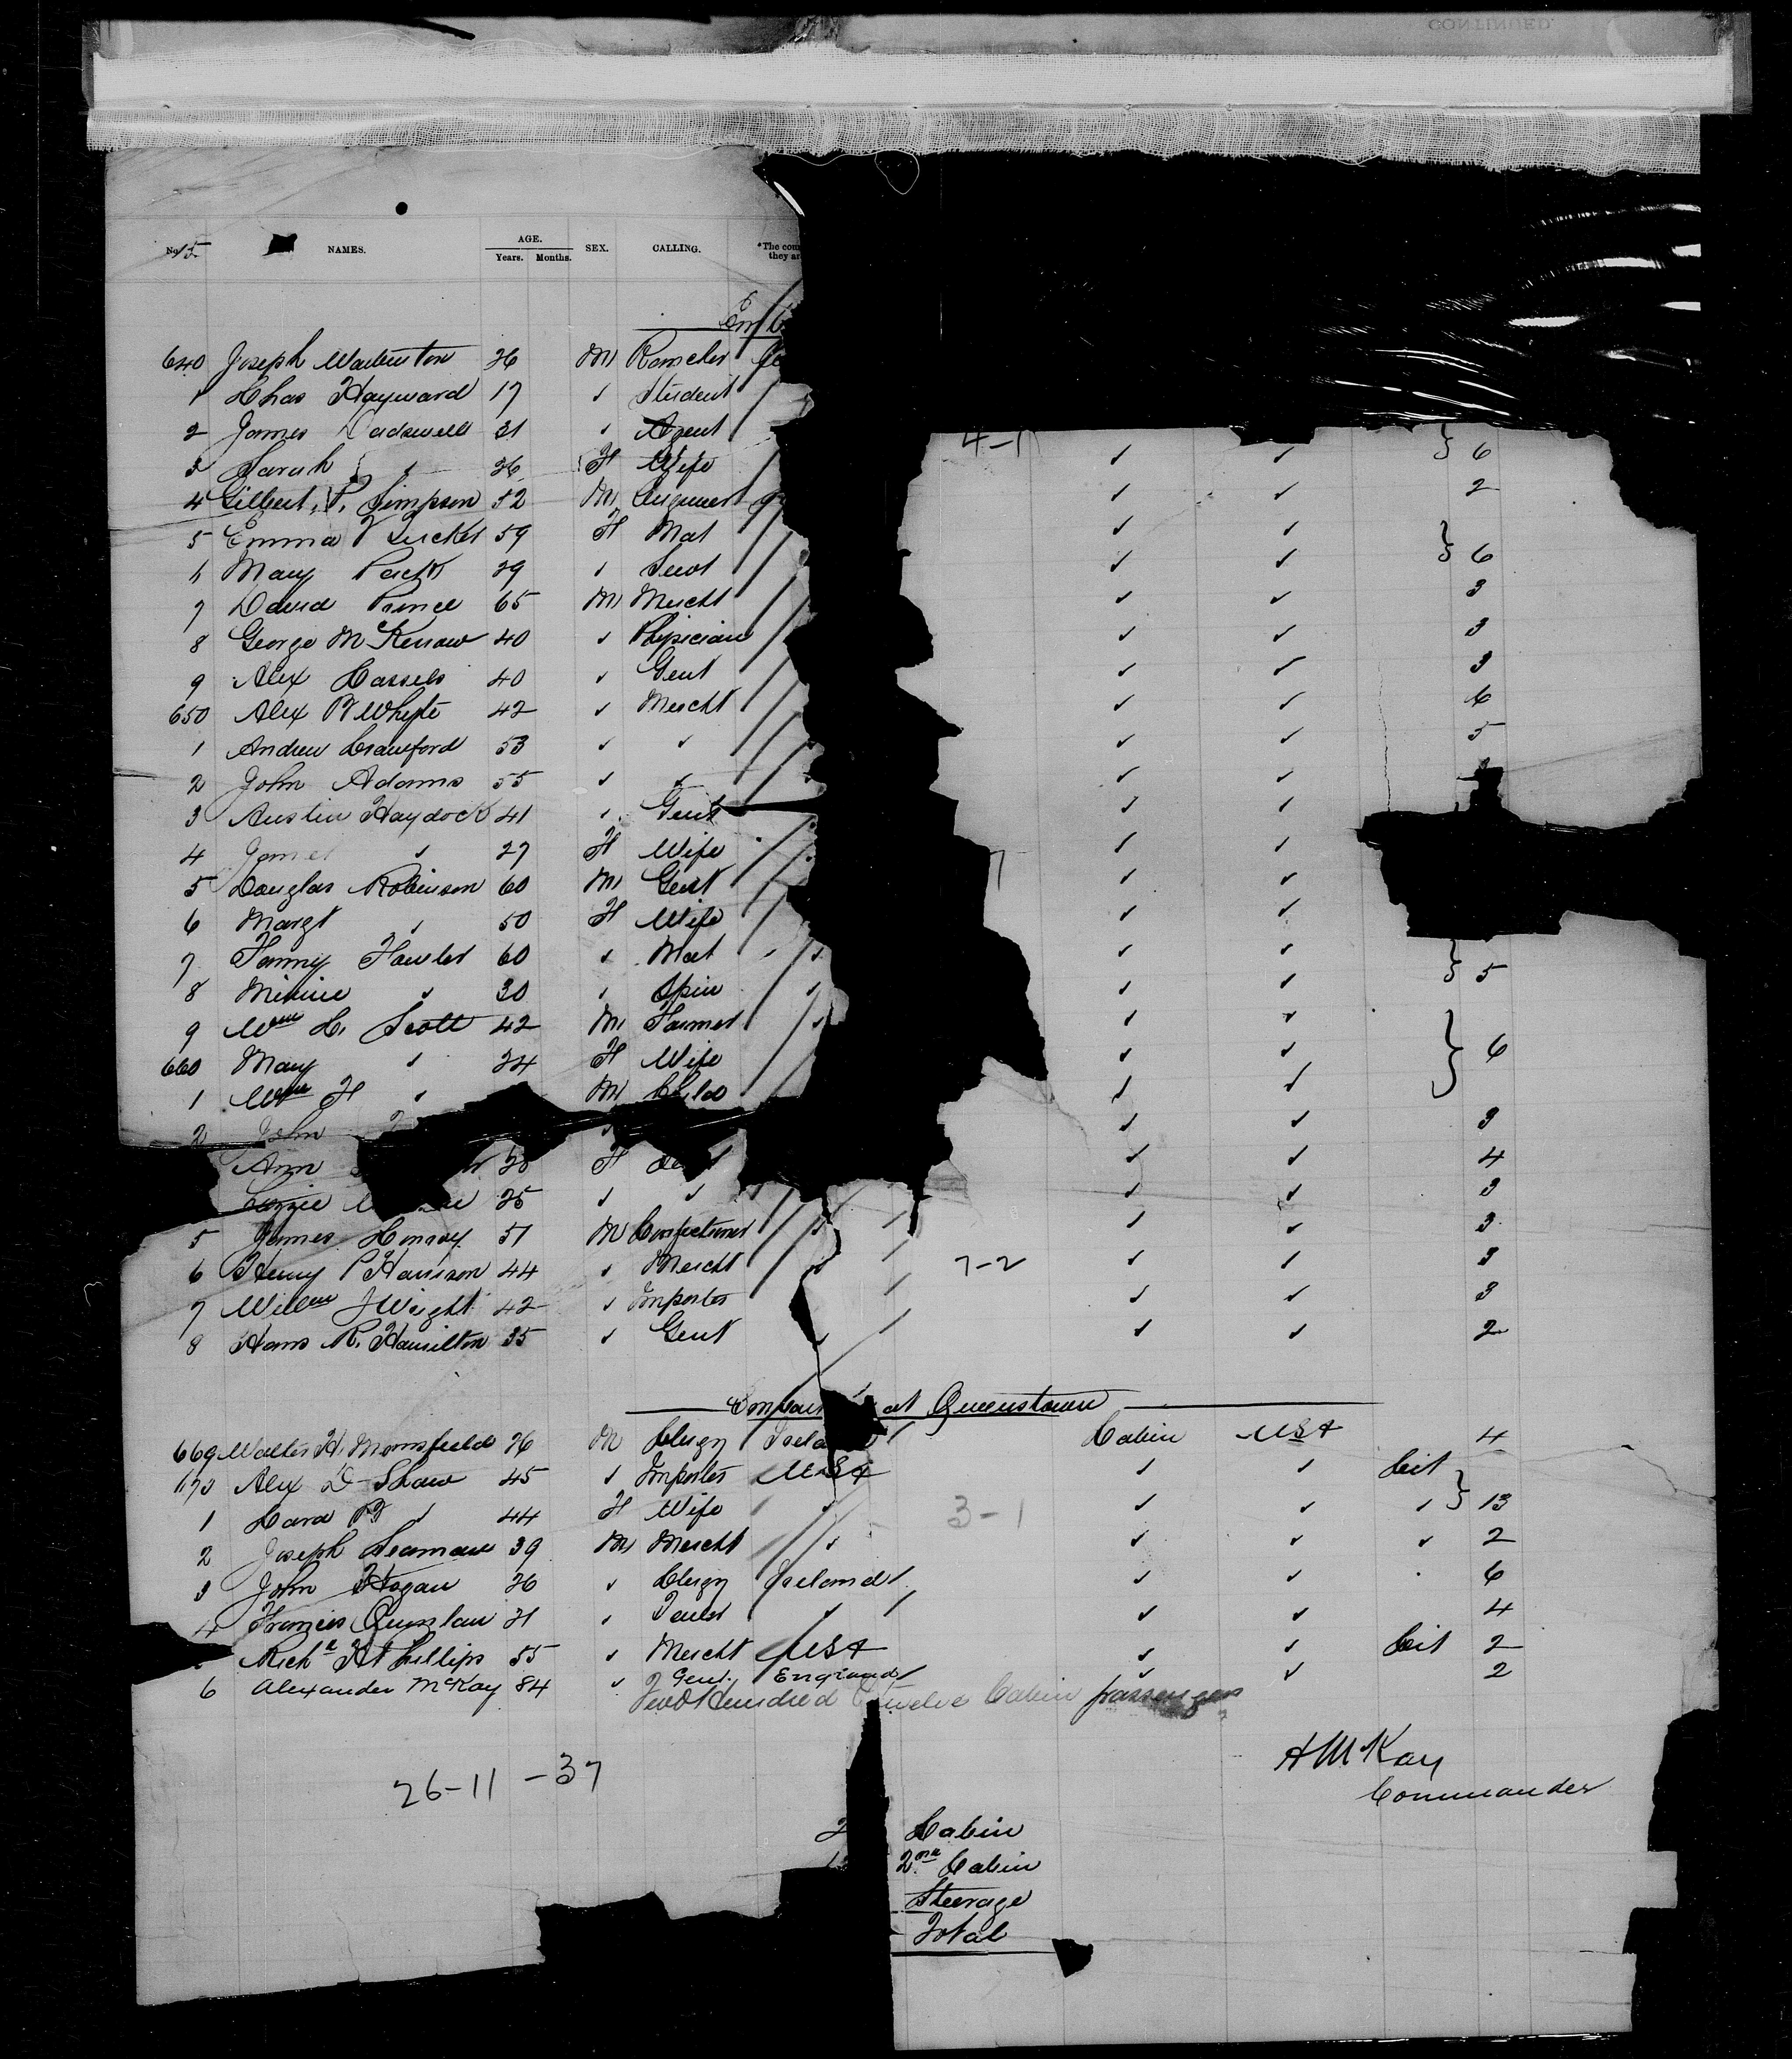 CONTINUED
No. 15 NAMES. AGE. SEX. CALLING. *The cou
Years. Months. they ar
Emb
640 Joseph Warburton 26 M Rancher
1 Chas Hayward 17 ✓ Student
2 James Dadswell 31 ✓ Agent 4-1 ✓ ✓
3 Sarah ✓ 26 F Wife ✓ ✓ } 6
4 Gilbert P. Simpson 52 M Engineer ✓ ✓ 2
5 Emma V Tucker 59 F Mat ✓ ✓
6 Mary Park 29 ✓ Servt ✓ ✓ } 6
7 David Prince 65 M Mercht ✓ ✓ 3
8 George M 40 ✓ Physician ✓ ✓ 3
9 Alex Cassels 40 ✓ Gent ✓ ✓ 3
650 Alex Whyte 42 ✓ Mercht ✓ ✓ 6
1 Andrew Crawford 53 ✓ ✓ ✓ ✓ 5
2 John Adams 55 ✓ ✓ ✓ ✓
3 Austin Haydock 41 ✓ Gent ✓ ✓
4 ✓ 27 F Wife ✓ ✓
5 Douglas Robinson 60 M Gent ✓ ✓
6 Margt ✓ 50 F Wife ✓ ✓
7 Fanny Fowler 60 ✓ Mat ✓ ✓
8 Minnie ✓ 30 ✓ Spin ✓ ✓ } 5
9 Wm H. Scott 42 M Farmer ✓ ✓
660 Mary ✓ 24 F Wife ✓ ✓ } 6
1 Wm H ✓ M Child ✓ ✓
2 John ✓ ✓ 3
Ann F ✓ ✓ 4
25 ✓ ✓ ✓ ✓ 3
5 James Conroy 51 M Confectioner ✓ ✓ 3
6 Henry P Harrison 44 ✓ Mercht 7-2 ✓ ✓ 3
7 Willm J Wright 42 ✓ Importer ✓ ✓ 3
8 Hans R. Hamilton 35 ✓ Gent ✓ ✓ 2
Embar at Queenstown
669 Walter H. Mansfield 26 M Clergy Ireland Cabin USA 4
670 Alex D Shaw 45 ✓ Importer USA ✓ ✓ Cit
1 Cara ✓ 44 F Wife ✓ 3-1 ✓ ✓ ✓ } 13
2 Joseph Seaman 39 M Mercht ✓ ✓ ✓ ✓ 2
3 John Hogan 26 ✓ Clergy Ireland ✓ ✓ 6
4 Francis Quinlan 21 ✓ ✓ ✓ ✓ 4
Richd H Phillips 55 ✓ Mercht USA ✓ ✓ Cit 2
6 Alexander McKay 84 ✓ Gent. England ✓ ✓ 2
Two Hundred & Twelve Cabin passengers
H McKay
Commander
26-11-37
2 Cabin
2nd Cabin
Steerage
Total